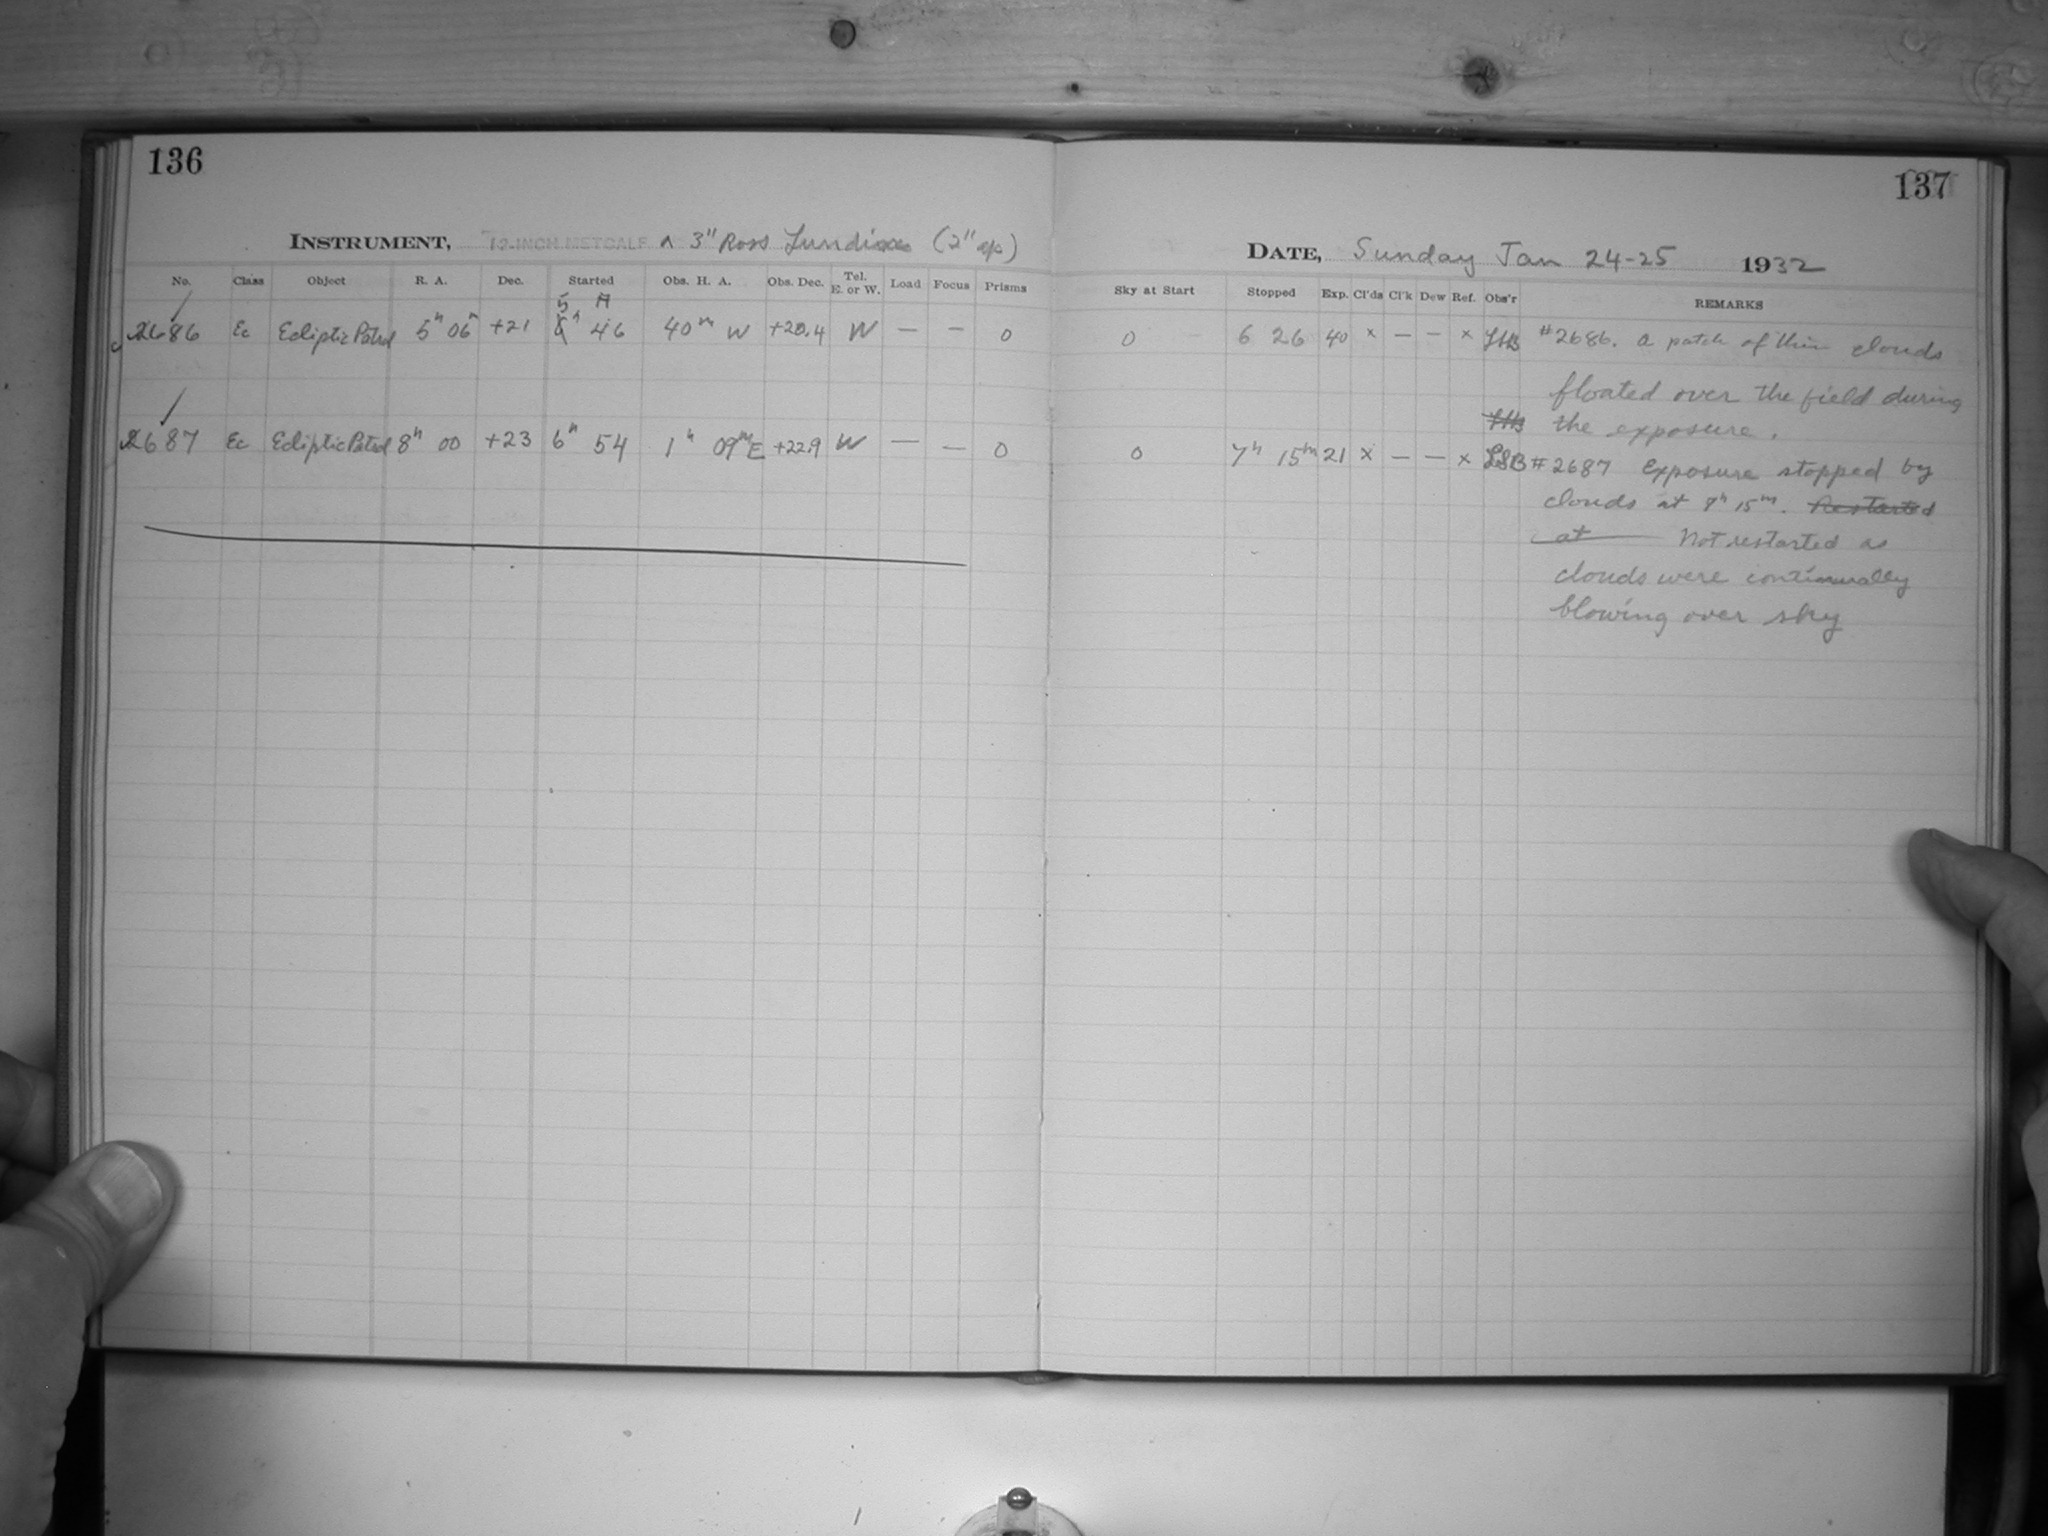 136
INSTRUMENT, 12-INCH METCALF ^ 3" Ross (2" ap)
No. Class Object R. A. Dec. Started Obs. H. A. Obs. Dec. Tel. E. or W. Load Focus Prisms
2686 Ec Ecliptic Patrol 5h 06m +21 5h 46 40m W +20.4 W — — 0
2687 Ec Ecliptic Patrol 8h 00 +23 6h 54 1h 09m E +22.9 W — — 0
137
DATE, Sunday Jan 24-25 1932
Sky at Start Stopped Exp. Cl'ds Cl'k Dew Ref. Obs'r REMARKS
0 6 26 40 x — — x #2686. a patch of thin clouds
floated over the field during
the exposure.
0 7h 15m 21 x — — x LSB #2687 Exposure stopped by
clouds at 7h 15m. Restarted
at Not restarted as
clouds were continually
blowing over sky